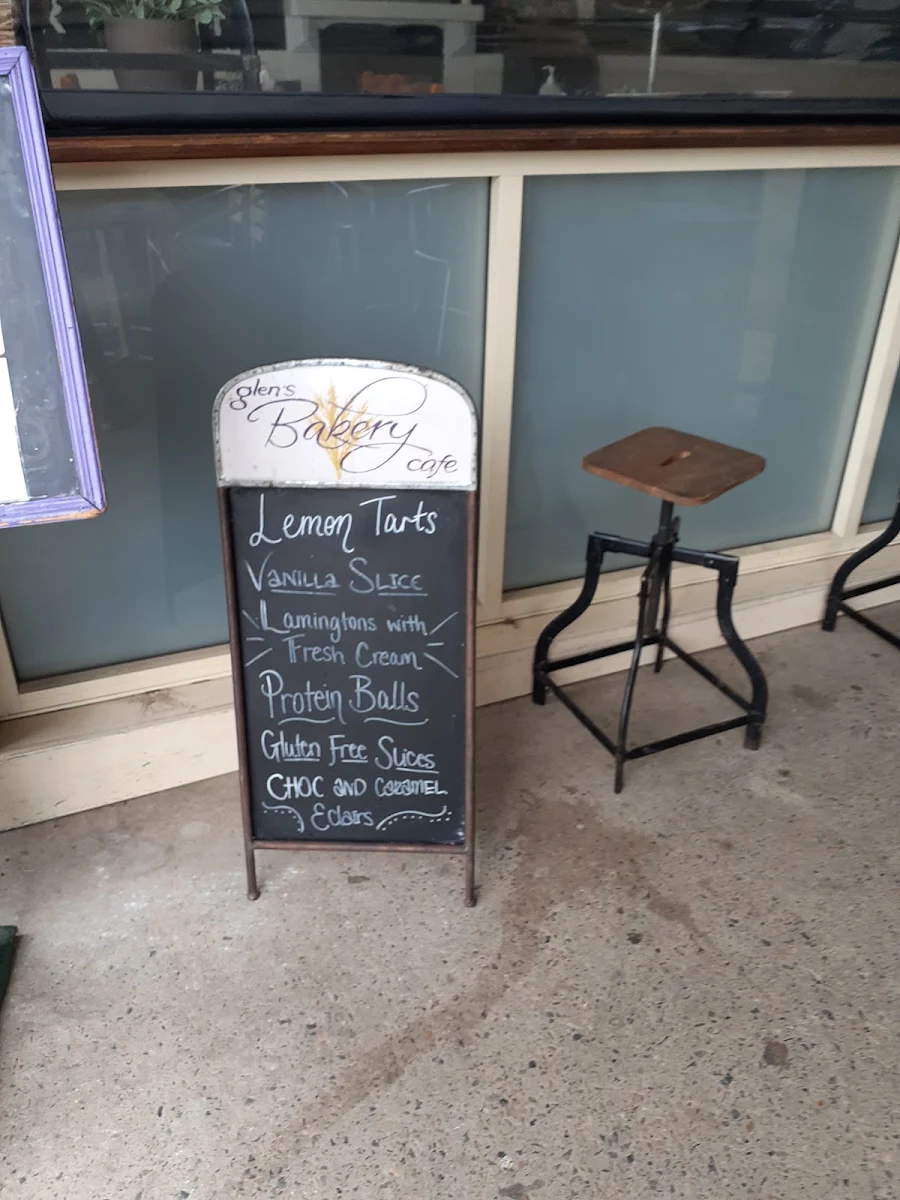 glen's
Bakery
cafe
Lemon Tarts
VANILLA SLICE
Lamingtons with
Fresh Cream
Protein Balls
Gluten Free Slices
CHOC AND CARAMEL
Eclairs